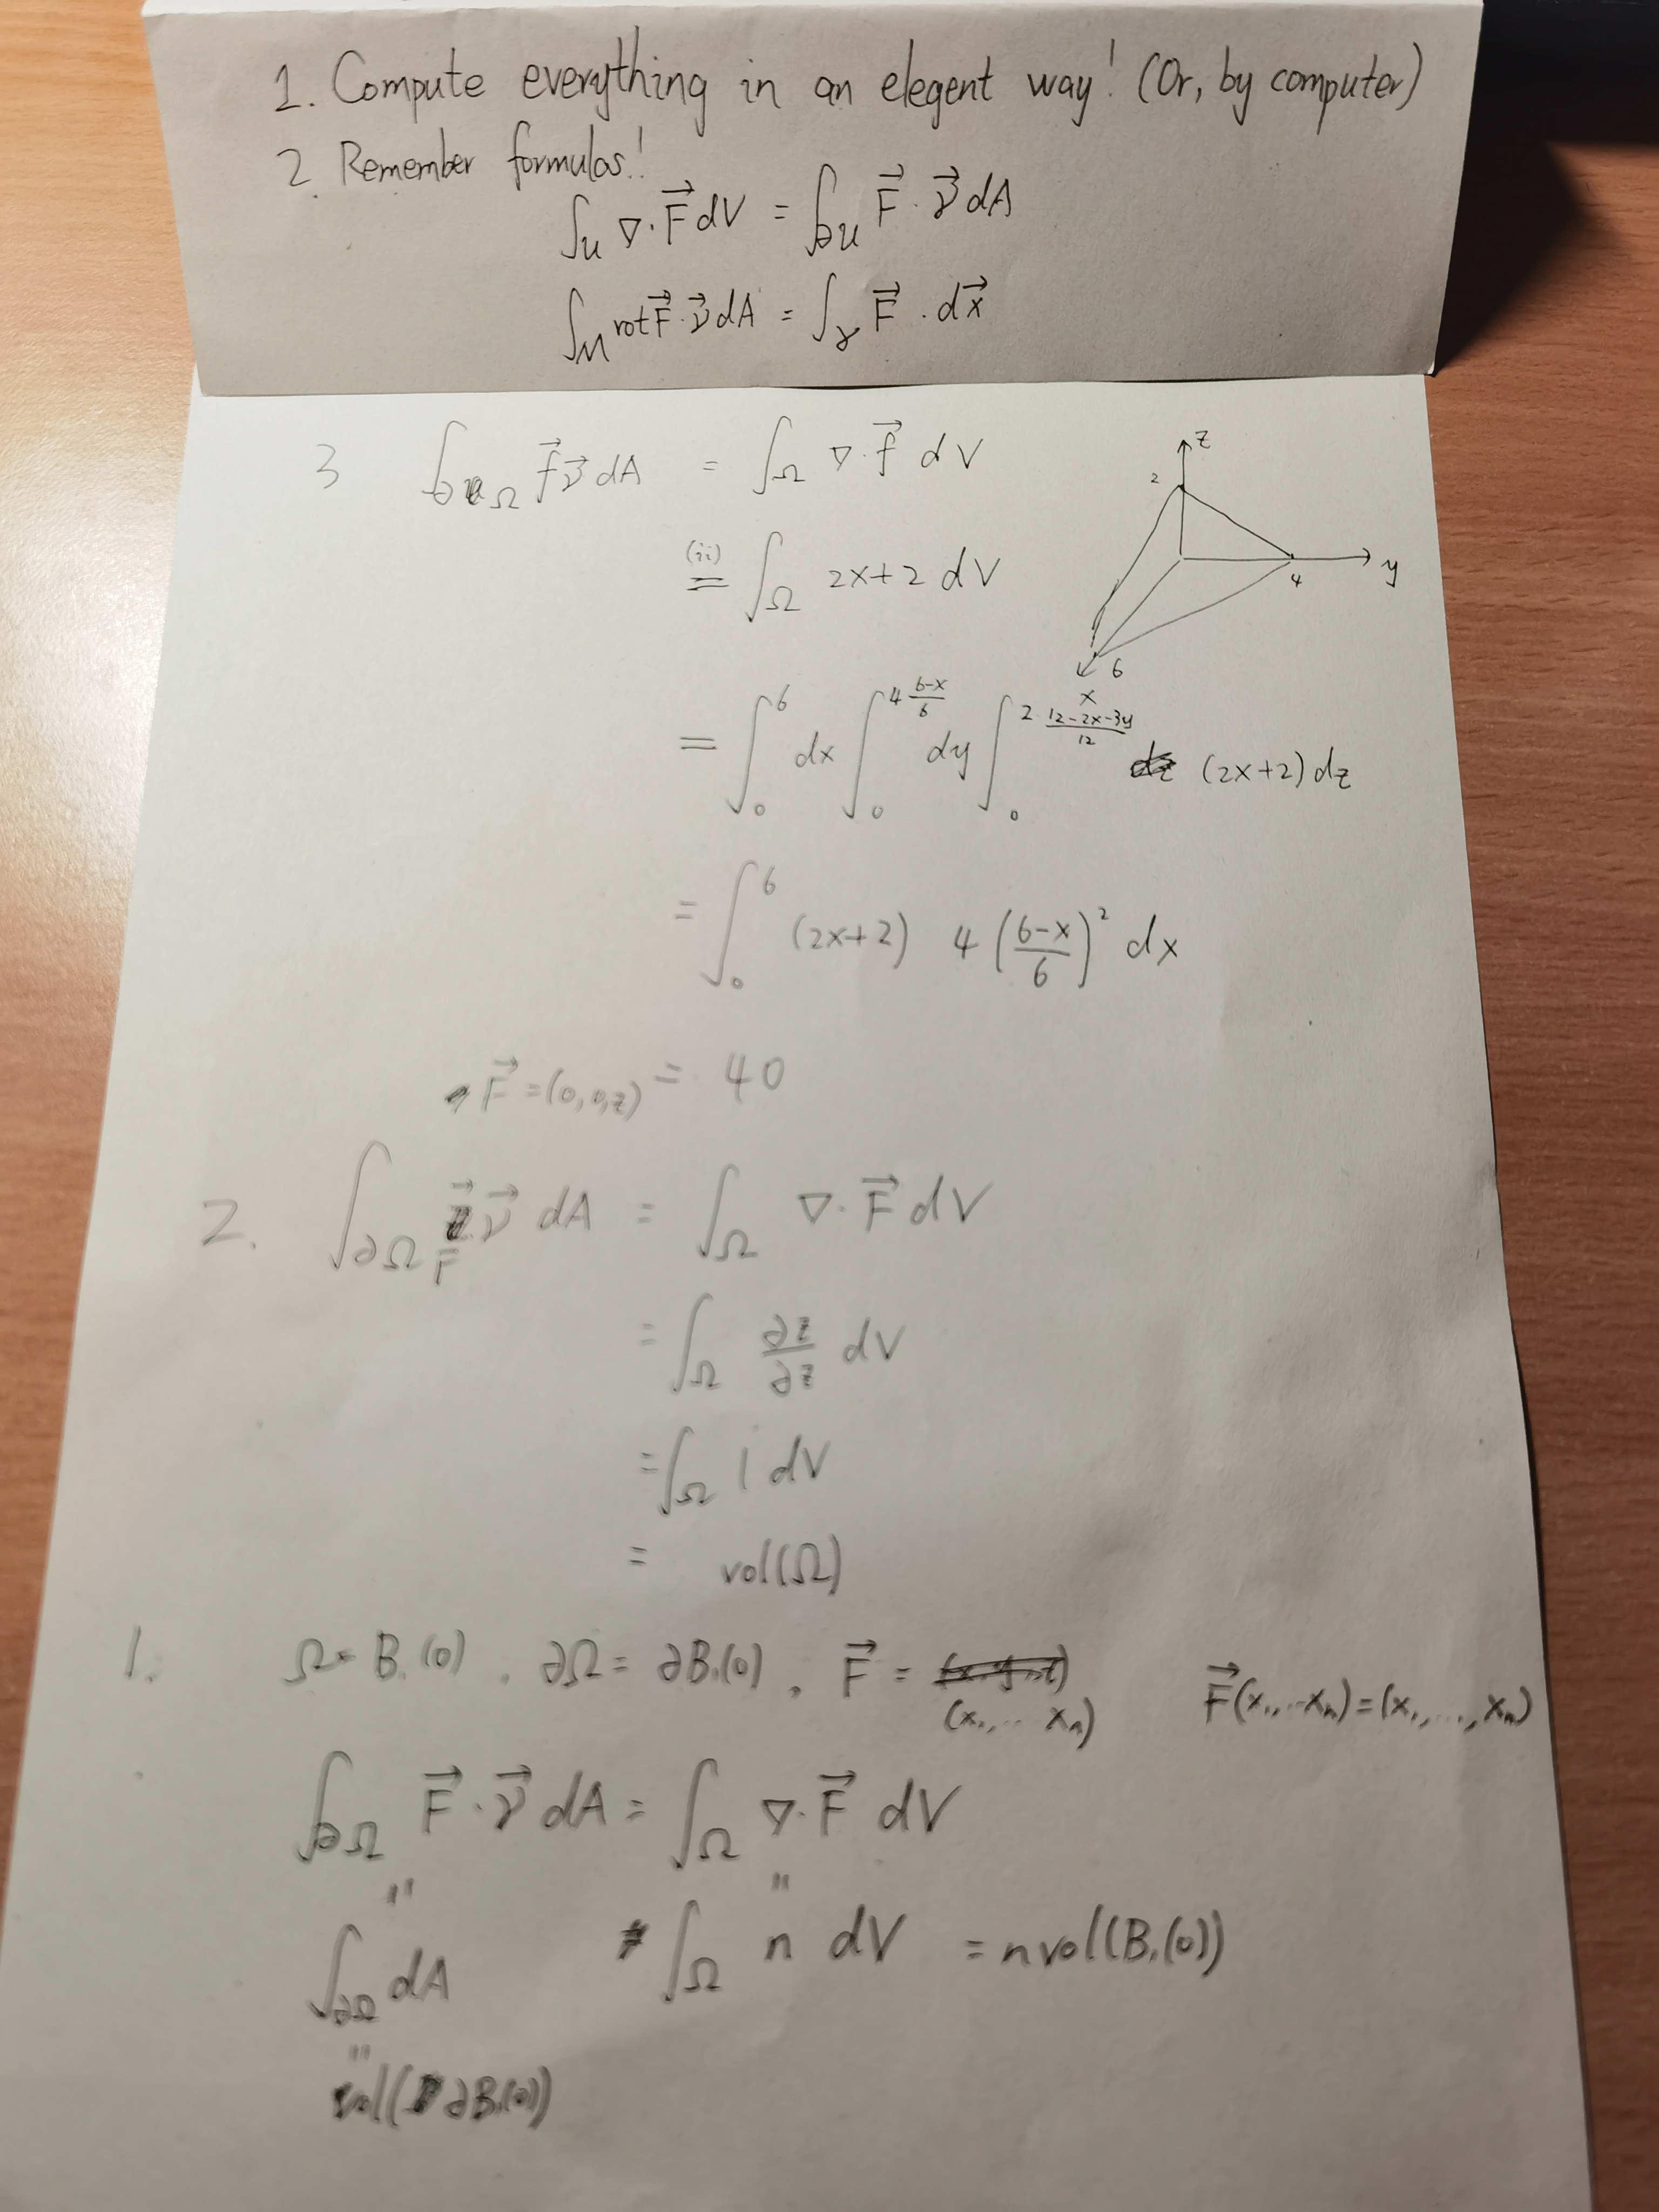 1. Compute everything in an elegent way! (Or, by computer)
2. Remember formulas!
∫_U ∇·F⃗ dV = ∫_∂U F⃗·ν⃗ dA
∫_M rot F⃗·ν⃗ dA = ∫_γ F⃗·dx⃗
3 ∫_∂Ω f⃗ν⃗ dA = ∫_Ω ∇·f⃗ dV
z
2
y
4
x
6
(ii)
= ∫_Ω 2x+2 dV
= ∫_0^6 dx ∫_0^{4 (6-x)/6} dy ∫_0^{2·(12-2x-3y)/12} (2x+2) dz
= ∫_0^6 (2x+2) 4 ((6-x)/6)² dx
= 40
F⃗ = (0,0,z)
2. ∫_∂Ω F ν⃗ dA = ∫_Ω ∇·F⃗ dV
= ∫_Ω ∂z/∂z dV
= ∫_Ω 1 dV
= vol(Ω)
1. Ω = B₁(0), ∂Ω = ∂B₁(0), F⃗ = (x₁,... xₙ) F⃗(x₁,...xₙ) = (x₁,...,xₙ)
∫_∂Ω F⃗·ν⃗ dA = ∫_Ω ∇·F⃗ dV
" "
∫_∂Ω dA ∫_Ω n dV = n vol(B₁(0))
"
vol(∂B₁(0))